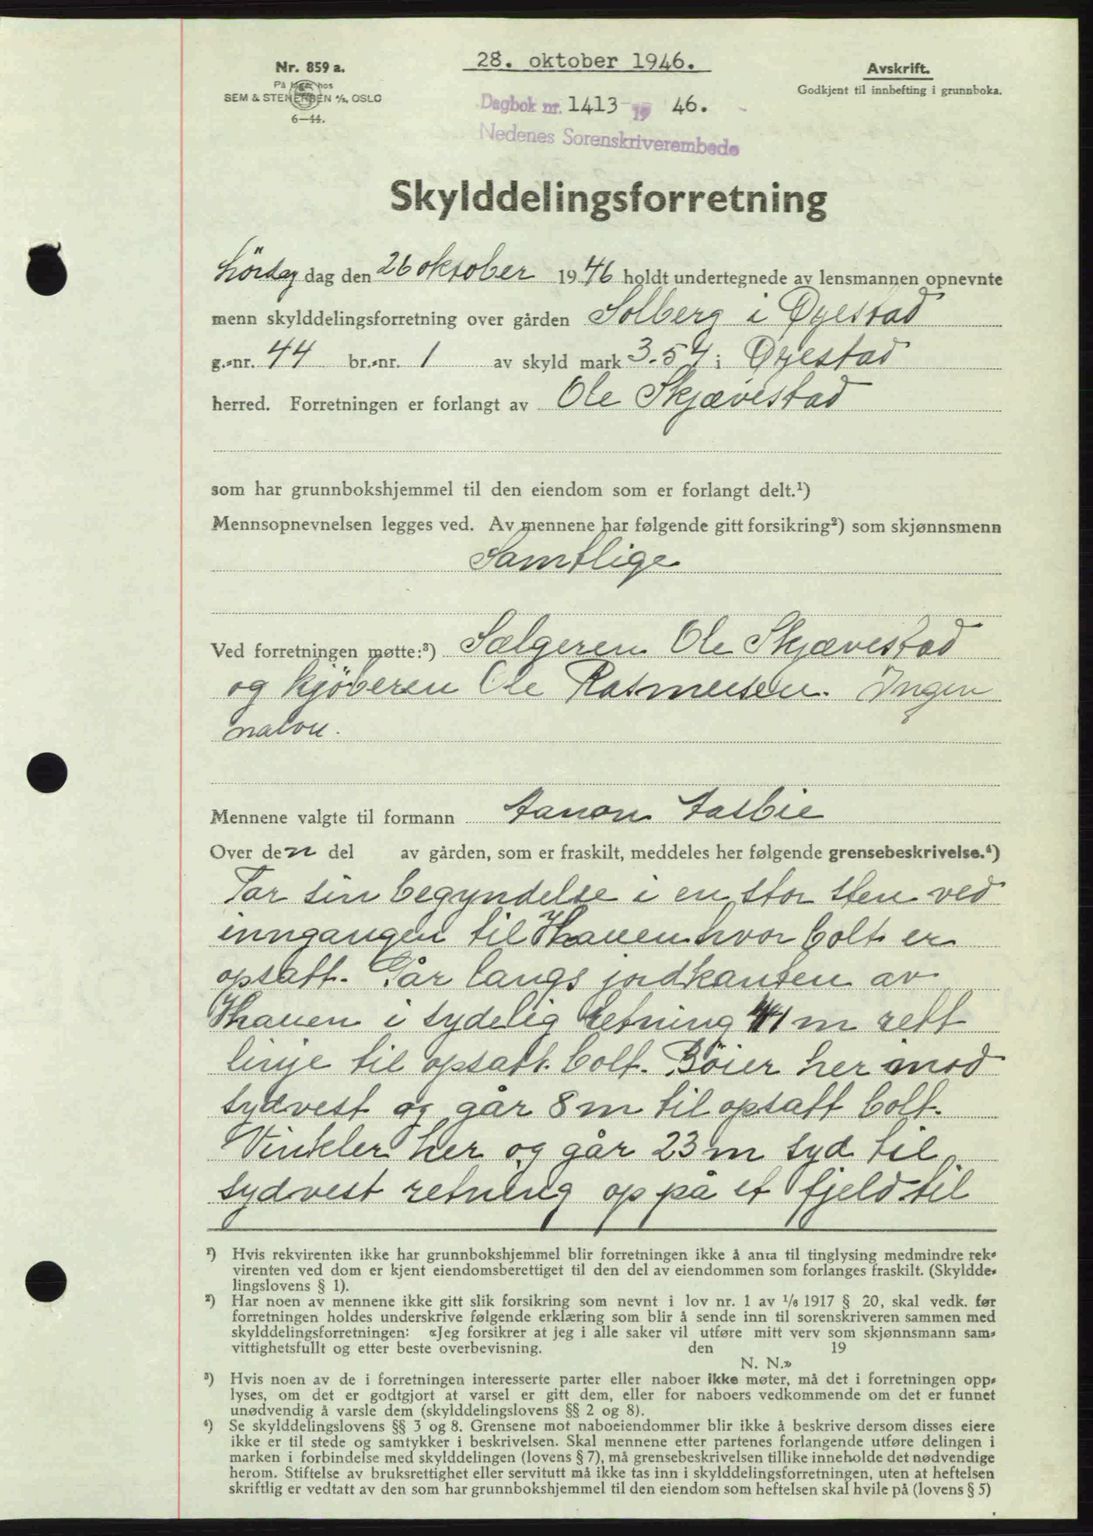 28. oktober 1946.
Nr. 859 a.
Avskrift.
På lager hos
SEM & STENERSEN A/S, OSLO
6—44.
Godkjent til innhefting i grunnboka.
Dagbok nr. 1413 19 46.
Nedenes Sorenskriverembede
Skylddelingsforretning
Lördag dag den 26 oktober 1946 holdt undertegnede av lensmannen opnevnte
menn skylddelingsforretning over gården Solberg i Øyestad
g.-nr. 44 br.-nr. 1 av skyld mark 3.54 i Øyestad
herred. Forretningen er forlangt av Ole Skjævestad
som har grunnbokshjemmel til den eiendom som er forlangt delt.¹)
Mennsopnevnelsen legges ved. Av mennene har følgende gitt forsikring²) som skjønnsmenn
Samtlige
Ved forretningen møtte:³) Sælgeren Ole Skjævestad
og kjöberen Ole Rasmussen. Ingen
nabou.
Mennene valgte til formann Aanon Aasbie
Over den del av gården, som er fraskilt, meddeles her følgende grensebeskrivelse.⁴)
Tar sin begyndelse i en stor sten ved
inngangen til Hauen hvor bolt er
opsatt. Går langs jordkanten av
Hauen i sydelig retning 41 m rett
linje til opsatt bolt. Böier her mod
sydvest og går 8 m til opsatt bolt.
Vinkler her og går 23 m syd til
sydvest retning op på et fjeld til
¹) Hvis rekvirenten ikke har grunnbokshjemmel blir forretningen ikke å anta til tinglysing medmindre rek-
virenten ved dom er kjent eiendomsberettiget til den del av eiendommen som forlanges fraskilt. (Skyldde-
lingslovens § 1).
²) Har noen av mennene ikke gitt slik forsikring som nevnt i lov nr. 1 av 1/6 1917 § 20, skal vedk. før
forretningen holdes underskrive følgende erklæring som blir å sende inn til sorenskriveren sammen med
skylddelingsforretningen: «Jeg forsikrer at jeg i alle saker vil utføre mitt verv som skjønnsmann sam-
vittighetsfullt og etter beste overbevisning. den 19
N. N.»
³) Hvis noen av de i forretningen interesserte parter eller naboer ikke møter, må det i forretningen opp-
lyses, om det er godtgjort at varsel er gitt dem, eller for naboers vedkommende om det er funnet
unødvendig å varsle dem (skylddelingslovens §§ 2 og 8).
⁴) Se skylddelingslovens §§ 3 og 8. Grensene mot naboeiendommer blir ikke å beskrive dersom disses eiere
ikke er til stede og samtykker i beskrivelsen. Skal mennene etter partenes forlangende utføre delingen i
marken i forbindelse med skylddelingen (lovens § 7), må grensebeskrivelsen tillike inneholde det nødvendige
herom. Stiftelse av bruksrettighet eller servitutt må ikke tas inn i skylddelingsforretningen, uten at heftelsen
skriftlig er vedtatt av den som har grunnbokshjemmel til den eiendom som heftelsen skal hvile på (lovens § 5)